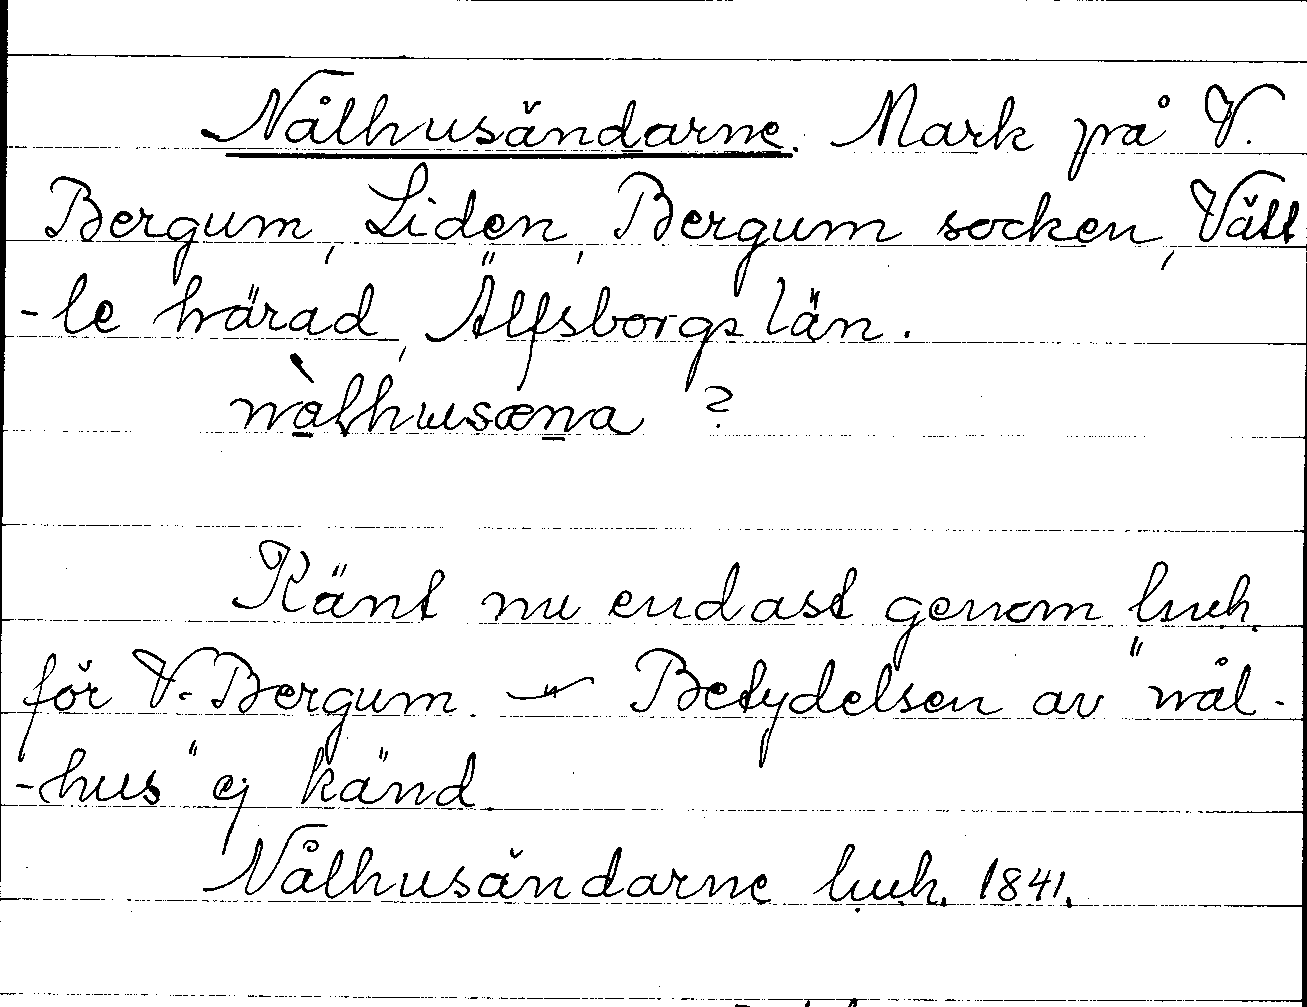 Nålhusändarne. Mark på V.
Bergum, Liden, Bergum socken, Vätt
-le härad, Älfsborgs län.
nàlhusæna ?
Känt nu endast genom l.u.h.
för V. Bergum. — Betydelsen av "nål-
-hus" ej känd.
Nålhusändarne l.u.h. 1841.